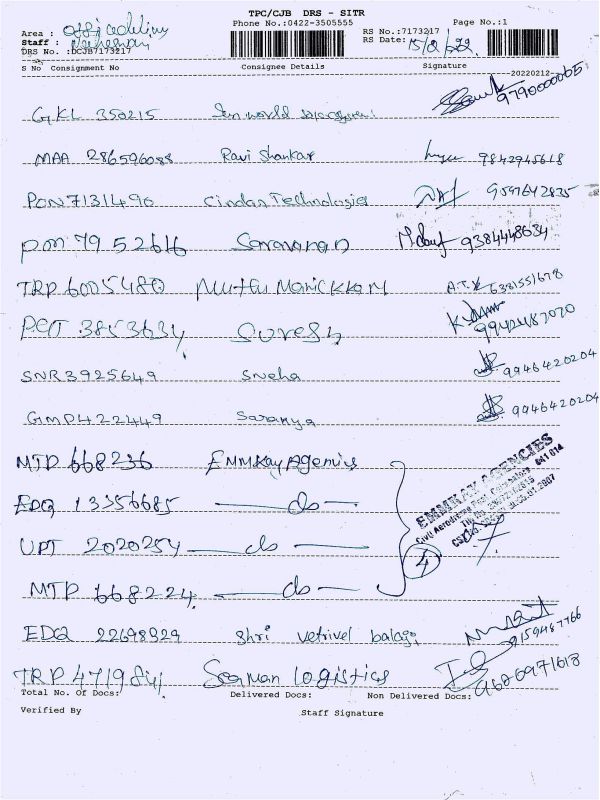 TPC/CJB DRS - SITR
Phone No.:0422-3505555 Page No.:1
Area :
Staff :
DRS No. :DCJB7173217
RS No.:7173217
RS Date: 15/2/22
S No Consignment No Consignee Details Signature
20220212
GKL 350215 9790000065
MAA 286596088 Ravi Shankar 9842945618
PON7131490 Cindan Technologies 9597642835
PON 7952616 Saravanan 9384448634
TRP 6005480 Muthu Manickkam A.T.K 6381551678
PCT 3853634 Suresh 9942487070
SNR3925649 Sneha 9946420204
GMP422449 Saranya 9946420204
MTP 668236 EMMKay Agencies
EDQ 13356685 do
UPT 2020254 do
MTP 668224 do
EMMKAY AGENCIES
4
EDQ 22698929 Shri vetrivel balaji 9159487766
TRP 4719841 Seaman logistics 9626971618
Total No. Of Docs: Delivered Docs: Non Delivered Docs:
Verified By Staff Signature